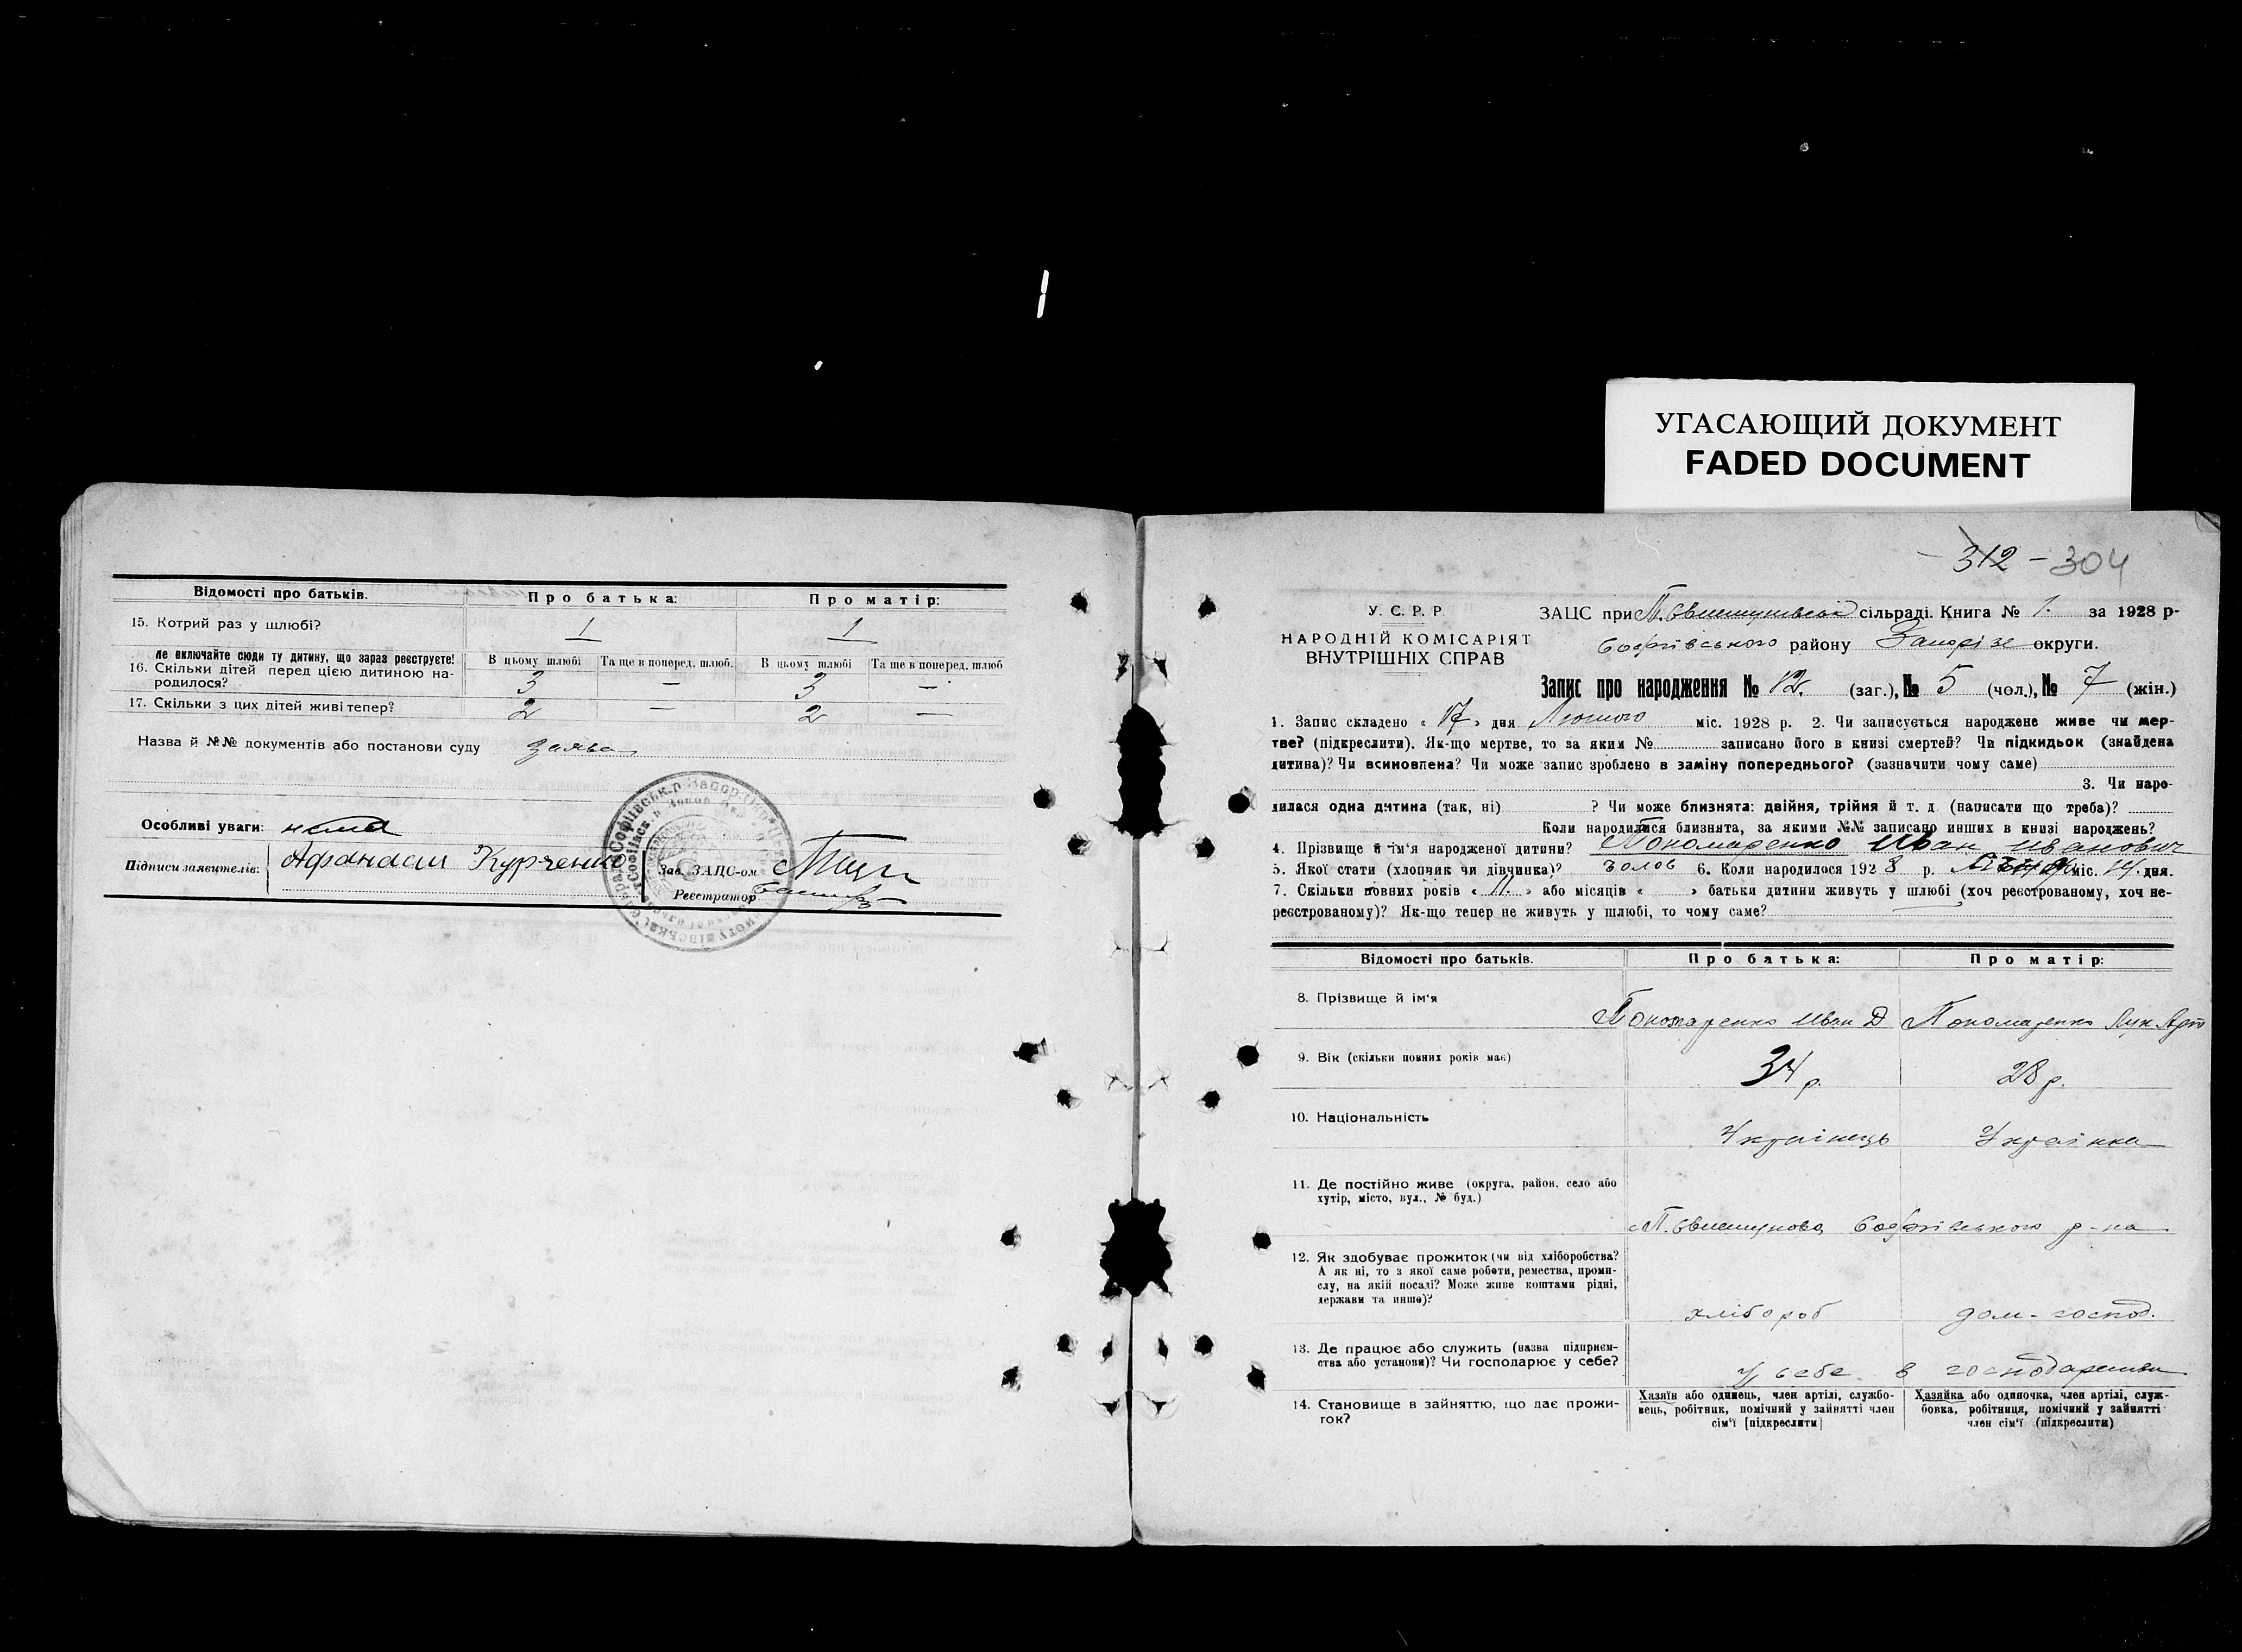 УГАСАЮЩИЙ ДОКУМЕНТ
FADED DOCUMENT
Відомості про батьків. Про батька: Про матір:
15. Котрий раз у шлюбі? 1 1
Не включайте сюди ту дитину, що зараз реєструєте! В цьому шлюбі Та ще в поперед. шлюб. В цьому шлюбі Та ще в поперед. шлюб
16. Скільки дітей перед цією дитиною на-
родилося? 3 — 3 —
17. Скільки з цих дітей живі тепер? 2 — 2 —
Назва й №№ документів або постанови суду заява
Особливі уваги: нема
Підписи заявителів: Афанасии Курченко
Зав. ЗАЦС-ом
Реєстратор
312 - 304
У. С. Р. Р. ЗАЦС при сільраді. Книга № 1. за 1928 р-
НАРОДНІЙ КОМІСАРІЯТ Софіївського району Запорізь округи.
ВНУТРІШНІХ СПРАВ
Запис про народження № 12. (заг.), № 5 (чол.), № 7 (жін.)
1. Запис складено « 17 » дня Лютого міс. 1928 р. 2. Чи записується народжене живе чи мер-
тве? (підкреслити). Як-що мертве, то за яким № записано його в книзі смертей? Чи підкидьок (знайдена
дитина)? Чи всиновлена? Чи може запис зроблено в заміну попереднього? (зазначити чому саме)
3. Чи наро-
дилася одна дитина (так, ні) ? Чи може близнята: двійня, трійня й т. д (написати що треба)?
Коли народилися близнята, за якими №№ записано инших в книзі народжень?
4. Прізвище й ім'я народженої дитини? Пономаренко Иван Иванович
5. Якої стати (хлопчик чи дівчинка)? чолов 6. Коли народилося 192 8 р. міс. 14. дня.
7. Скільки повних років « 11. » або місяців « » батьки дитини живуть у шлюбі (хоч реєстрованому, хоч не-
реєстрованому)? Як-що тепер не живуть у шлюбі, то чому саме?
Відомості про батьків. Про батька: Про матір:
8. Прізвище й ім'я Пономаренко Иван Д Пономаренко
9. Вік (скільки повних років має) 34 р. 28 р.
10. Національність Українець Українка
11. Де постійно живе (округа, район, село або
хутір, місто, вул., № буд.) Софіївського р-на
12. Як здобуває прожиток (чи від хліборобства?
А як ні, то з якої саме роботи, ремества, проми-
слу, на якій посаді? Може живе коштами рідні,
держави та инше)? хлібороб дом-господ.
13. Де працює або служить (назва підприєм-
ства або установи)? Чи господарює у себе? У себе в господарстви
14. Становище в зайняттю, що дає прожи-
ток?
Хазяїн або одинець, член артілі, службо-
вець, робітник, помічний у зайнятті член
сім'ї [підкреслити]
Хазяйка або одиночка, член артілі, служ-
бовка, робітниця, помічний у зайнятті
член сім'ї (підкреслити)